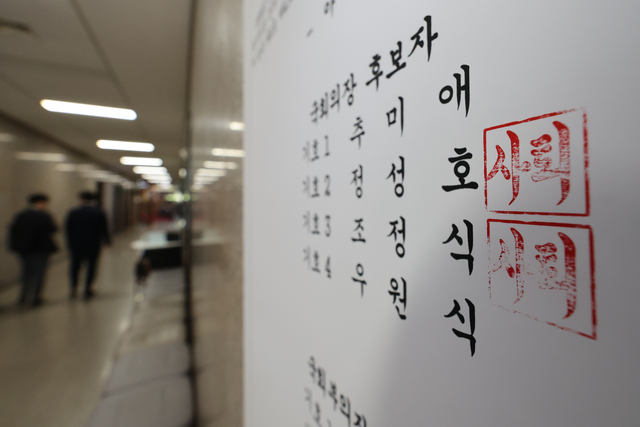 국회의장 후보자
기호 1 추 미 애
기호 2 정 성 호 사퇴
기호 3 조 정 식 사퇴
기호 4 우 원 식
국회부의장